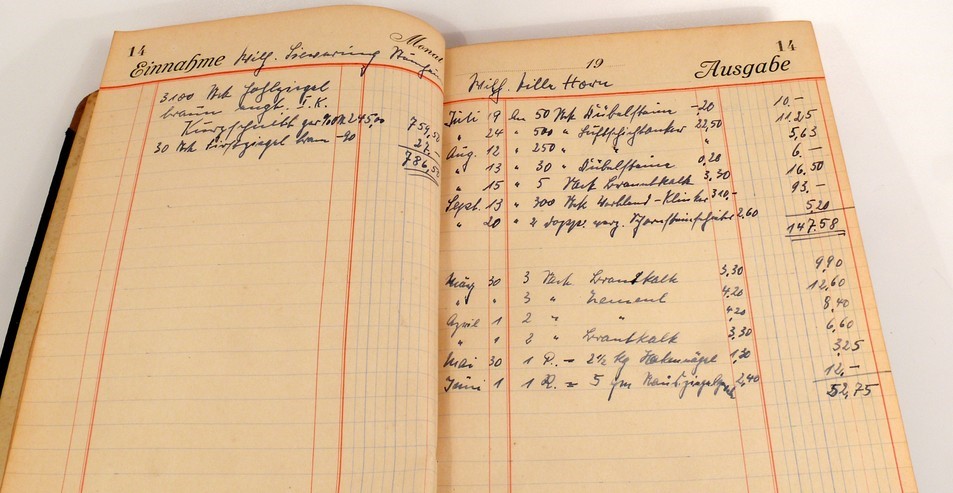 14
Einnahme Wilh. Monat
3100 Stck Hohlziegel
braun engl. I.K.
245,00 759,50
30 Stck Firstziegel braun -90 27,-
786,50
19 14
Ausgabe
Wilh. Wille Horn
Juli 19 50 Stck Dübelsteine -,20 10.-
" 24 " 500 " Luftschichtanker 22,50 11,25
Aug. 12 " 250 " " " 5,63
" 13 " 30 " Dübelsteine 0,20 6.-
" 15 " 5 Sack Branntkalk 3,30 16,50
Sept. 13 " 300 Stck Klinker 310,- 93,-
" 20 " 2 dopp. verz. Schornsteinschieber 2,60 5,20
147.58
März 30 3 Sack Branntkalk 3,30 9,90
" " 3 " Zement 4,20 12,60
April 1 2 " " 4,20 8,40
" 1 2 " Branntkalk 3,30 6,60
Mai 30 1 P. = 2½ Kg Hakennägel 1,30 3,25
Juni 1 1 R. = 5 qm 2,40 12,-
52,75